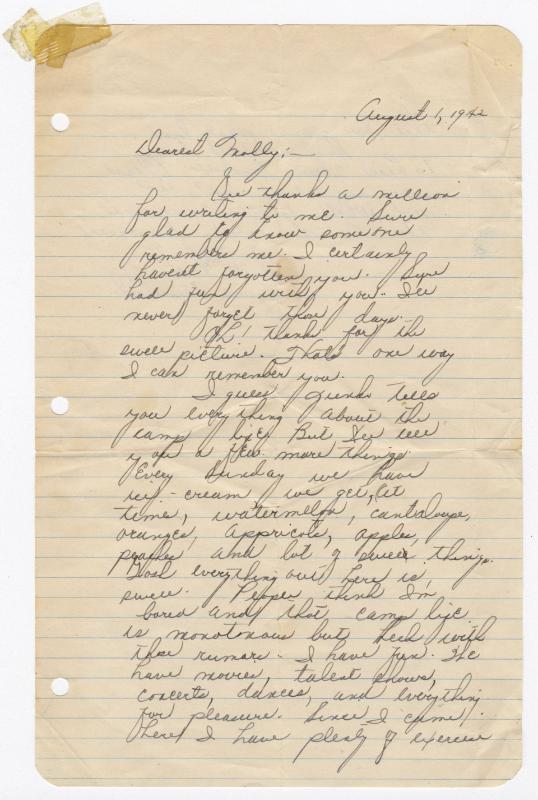 August 1, 1942
Dearest Molly:—
Gee thanks a million
for writing to me. Sure
glad to know someone
remembers me. I certainly
havent forgotten you. Sure
had fun with you. I'll
never forget those days.
Oh! thanks for the
swell picture. Thats one way
I can remember you.
I guess tells
you everything about the
camp life. But I'll tell
you a few more things.
Every Sunday we have
ice-cream we get, at
time, watermelon, cantaloupe,
oranges, appricots, apples,
peaches and lot of sweet things.
Gosh everything out here is
swell. People think I'm
bored and that camp life
is monotonous but heck with
those rumors. I have fun. We
have movies, talent shows,
concerts, dances, and everything
for pleasure. Since I came
here I have plenty of exercise